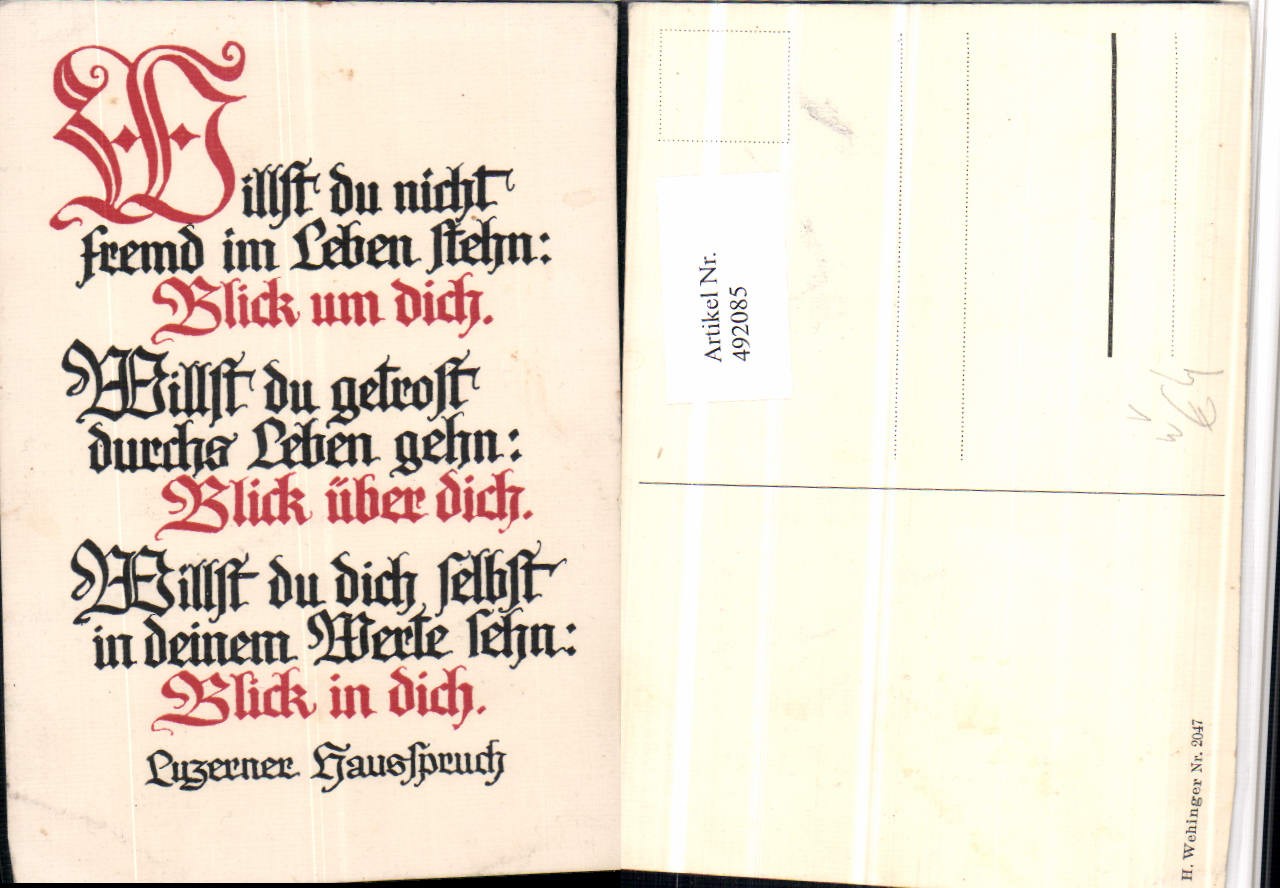 Willst du nicht
fremd im Leben stehn:
Blick um dich.
Willst du getrost
durchs Leben gehn:
Blick über dich.
Willst du dich selbst
in deinem Werte sehn:
Blick in dich.
Luzerner Hausspruch
Artikel Nr.
492085
H. Wehinger Nr. 2047